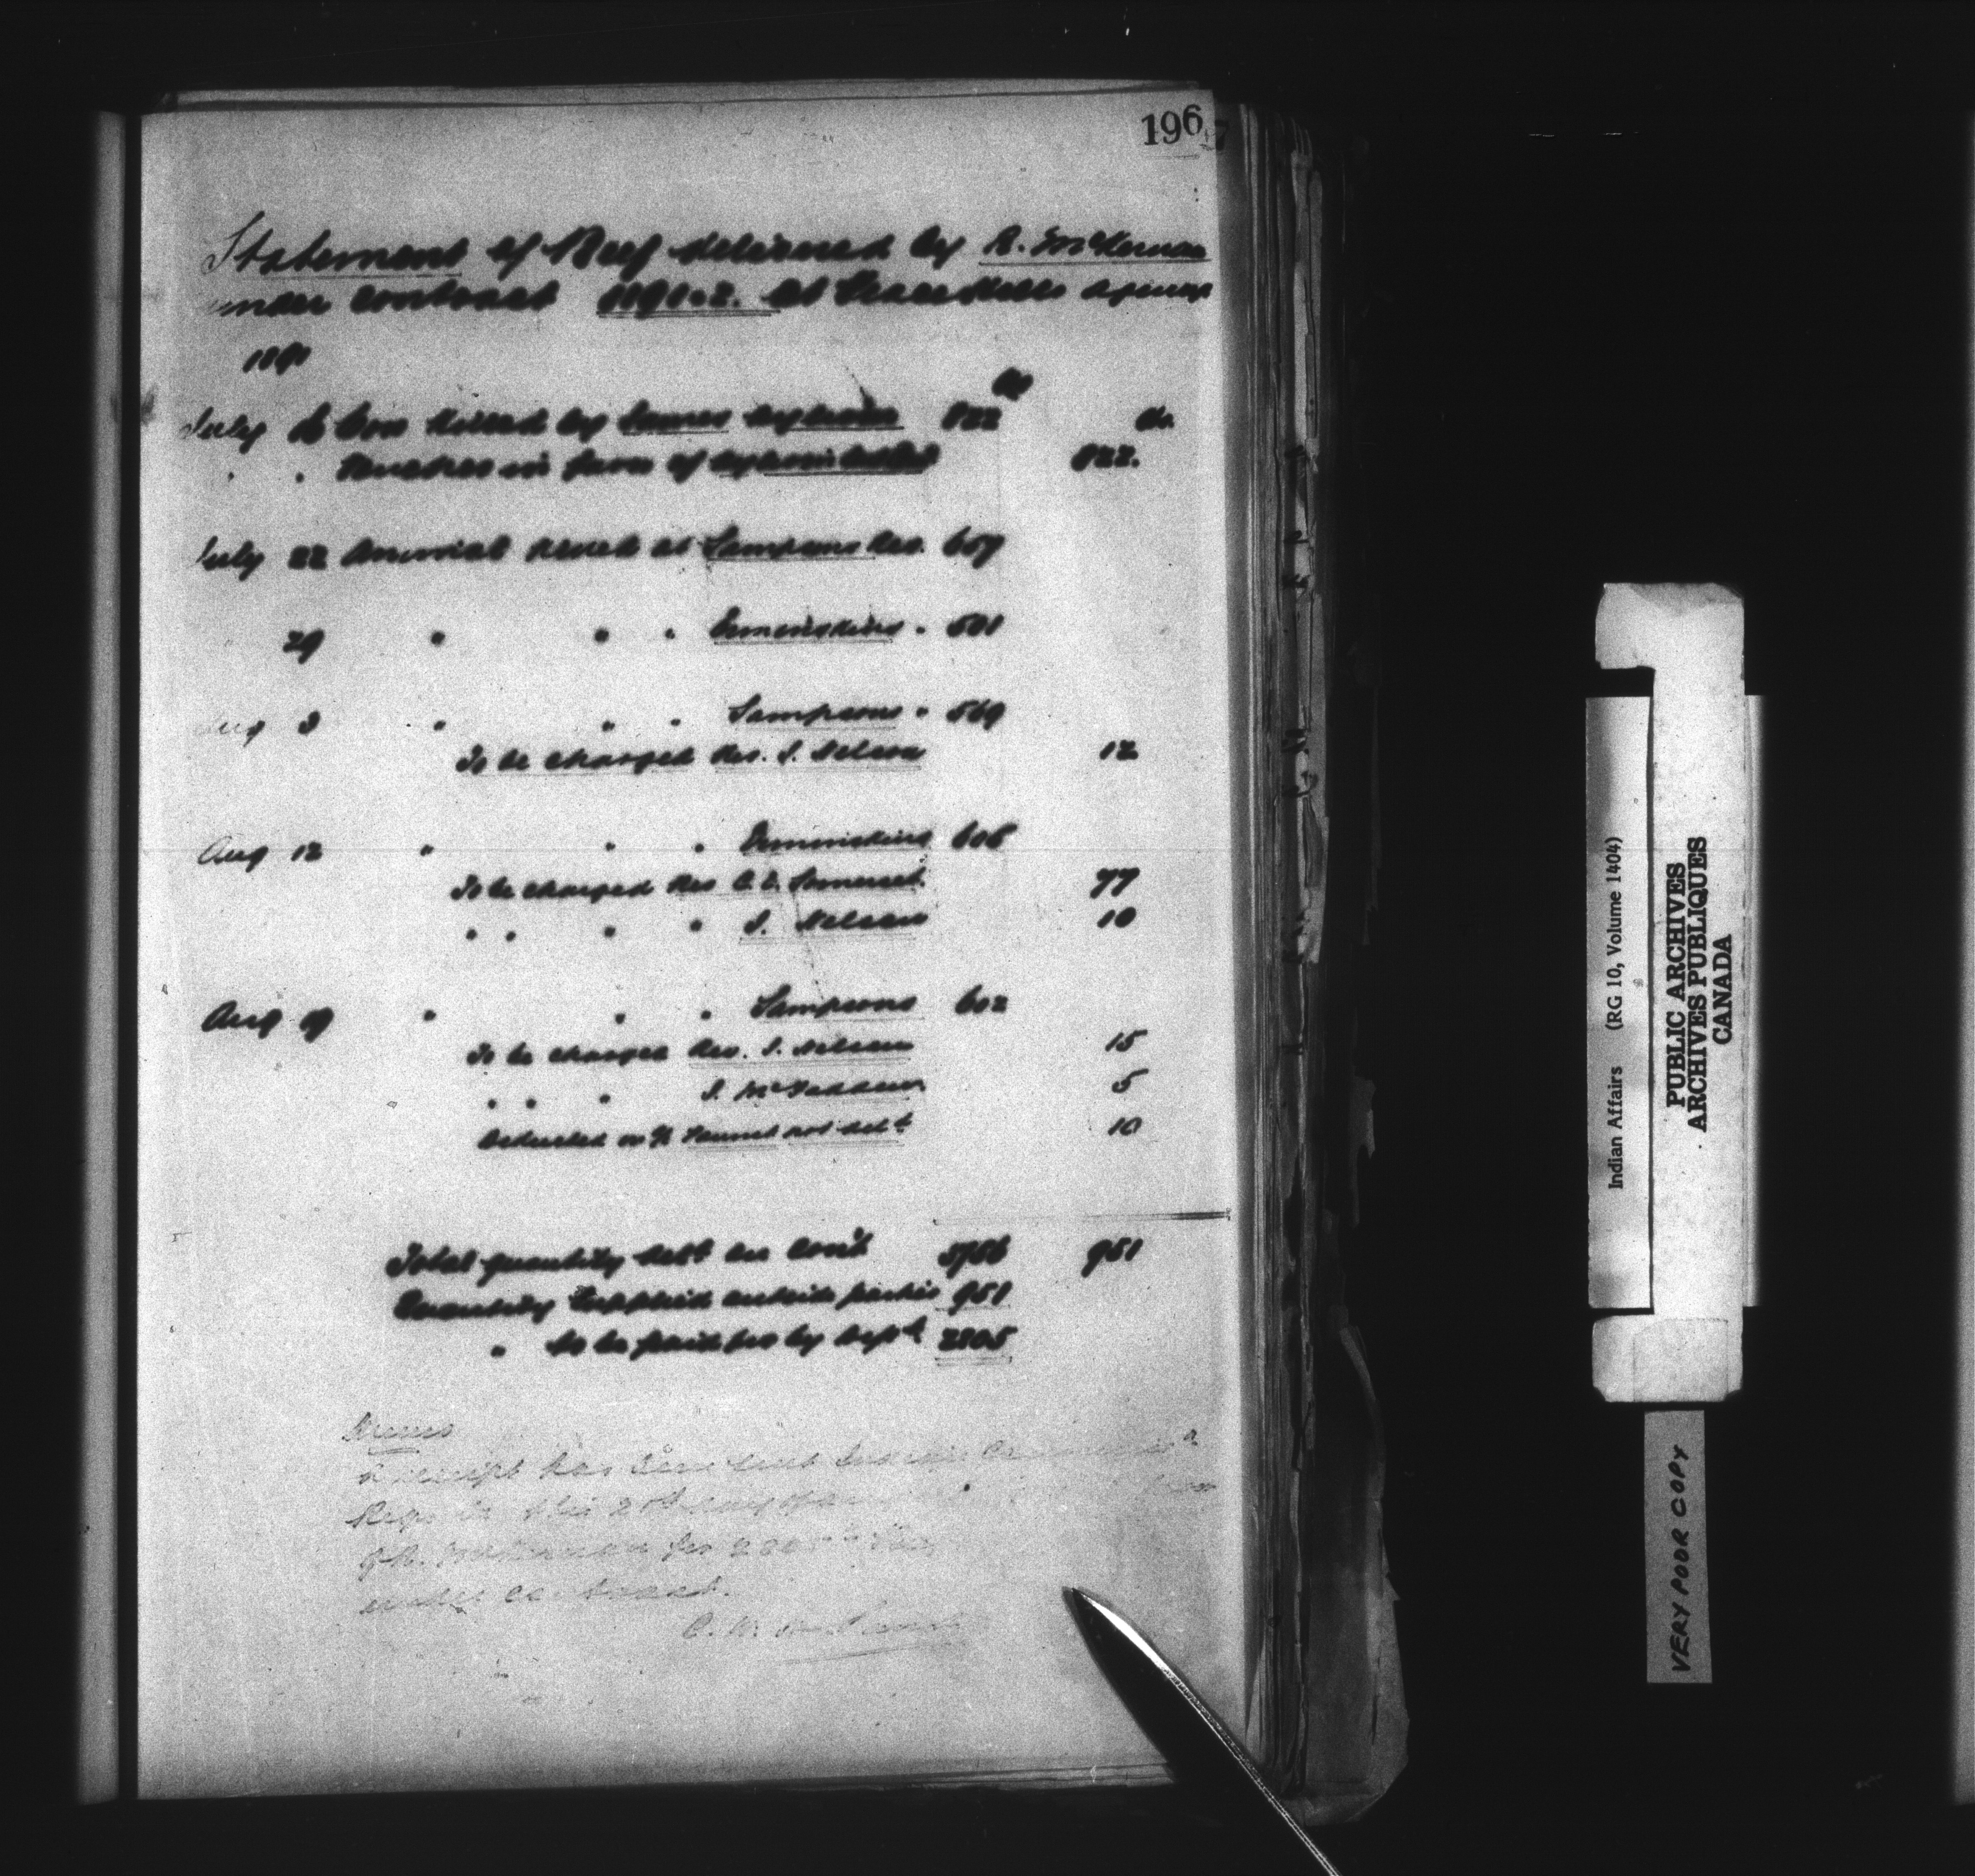 196
Statement of Beef delivered by R. McKernan
under contract 1891-2. at Peace Hills Agency
1891
lbs
July Cow killed by James 822 lbs.
" " in favor of 822.
July 22 Animal killed at Sampsons Res. 657
29 " " " Ermineskins " 501
Aug 3 " " " Sampsons " 569
To be charged Rev. J. Nelson 12
Aug 12 " " " Ermineskins 606
To be charged Rev C. E. Somerset. 77
" " " " J. Nelson 10
Aug 19 " " " Sampsons 602
To be charged Rev. J. Nelson 15
" " " J. McFadden 5
Deducted not deld 10
Total quantity deld on Cont 3756 951
Quantity supplied outside parties 951
" to be paid for by Dept 2805
Memo
Receipt has been sent Indian
Regina this day of
of R. McKernan for 2805 lbs
under contract.
Indian Affairs (RG 10, Volume 1404)
PUBLIC ARCHIVES
ARCHIVES PUBLIQUES
CANADA
VERY POOR COPY